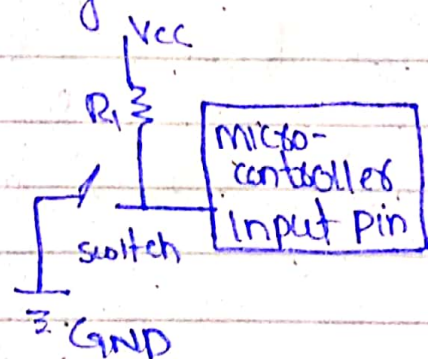 Vcc
R1
micro-
controller
input pin
switch
GND